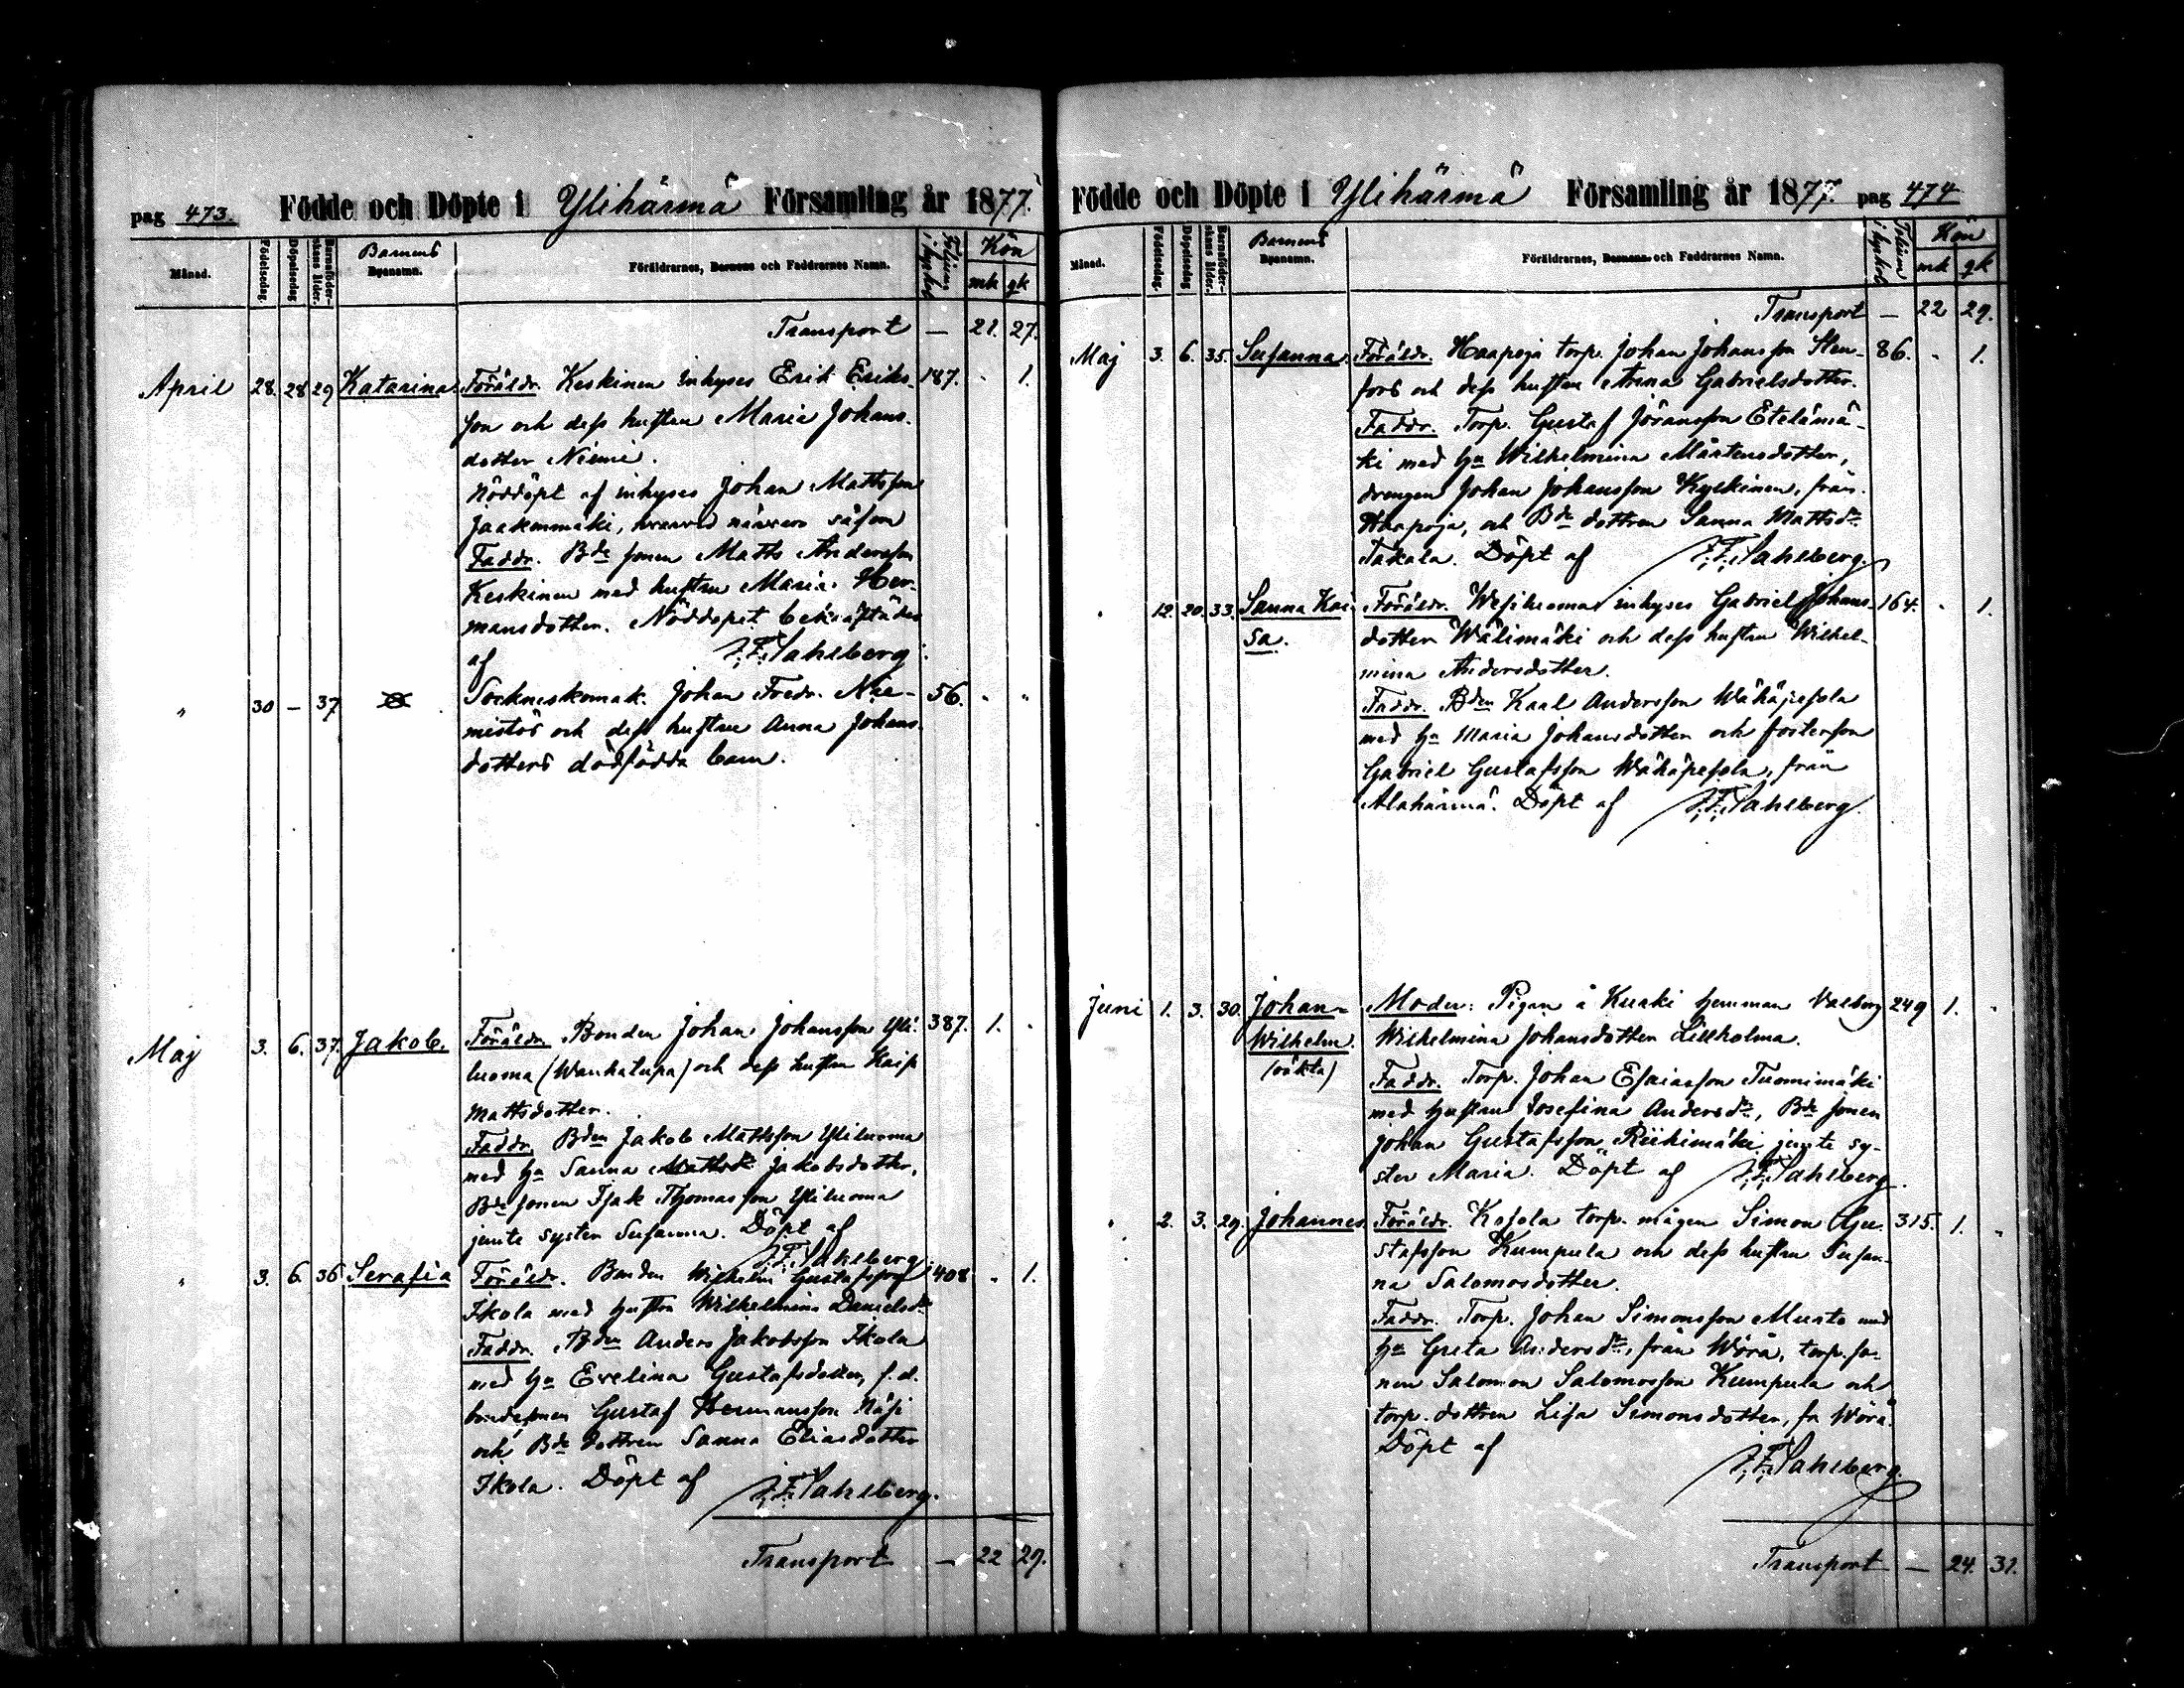 pag 473. Födde och Döpte i Ylihärmä Församling år 1877.
Månad. Födelsedag. Döpelsedag Barnaföderskans ålder. Barnens Byanamn. Föräldrarnes, Barnens och Faddrarnes Namn. Folium i kyrkob Kön
mk qk
Transport — 21. 27.
April 28. 28 29 Katarina. Föräldr. Keskinen inhyses Erik Eriks 187. " 1.
son och dess hustru Maria Johans.
dotter Niemi.
Nöddöpt af inhyses Johan Mattsson
Jaakonmäki, närvaro såsom
Faddr. Bde sonen Matts Andersson
Keskinen med hustru Maria Her-
mansdotter. Nöddopet bekräftades
af J. F. Sahlberg.
" 30 — 37 Sockneskomak. Johan Fredr. Nie- 56. " "
mistös och dess hustru Anna Johans
dotters dödfödda barn.
Maj 3. 6. 37. Jakob. Föräldr. Bonden Johan Johansson Yli- 387. 1. "
luoma (Wanhatupa) och dess hustru Kaisa
Mattsdotter.
Faddr. Bden Jakob Mattsson Yliluoma
med ha Sanna Mattsdr Jakobsdotter,
Bde sonen Isak Thomasson Yliluoma
jemte syster Susanna. Döpt af
J. F. Sahlberg.
" 3. 6. 36 Serafia Föräldr. Bonden Wilhelm Gustafsson 408 " 1.
Ikola med hustru Wilhelmina Danielsdr
Faddr. Bden Anders Jakobsson Ikola
med ha Evelina Gustafsdotter, f.d.
bondesonen Gustaf Hermansson Näsi
och Bde dottren Sanna Eliasdotter
Ikola. Döpt af J. F. Sahlberg.
Transport — 22 29.
Födde och Döpte i Ylihärmä Församling år 1877. pag 474
Månad. Födelsedag. Döpelsedag Barnaföderskans ålder. Barnens Byanamn. Föräldrarnes, Barnens och Faddrarnes Namn. Folium i kyrkob Kön
mk qk
Transport — 22 29.
Maj 3. 6. 35. Susanna. Föräldr. Haapoja torp. Johan Johansson Sten- 86. " 1.
fors och dess hustru Anna Gabrielsdotter.
Faddr. Torp. Gustaf Jöransson Etelämä-
ki med ha Wilhelmina Mårtensdotter,
drengen Johan Johansson Kyskinen, från
Haapoja, och Bde dottren Sanna Mattsdr
Takala. Döpt af J. F. Sahlberg.
" 12. 20. 33. Sanna Kai- Föräldr. Wesiluoma inhyses Gabriel Johans- 164. " 1.
sa. dotter Wälimäki och dess hustru Wilhel-
mina Andersdotter.
Faddr. Bden Karl Andersson Wähäpesola
med ha Maria Johansdotter och fosterson
Gabriel Gustafsson Wähäpesola, från
Alahärmä. Döpt af J. F. Sahlberg.
Juni 1. 3. 30. Johan- Moder: Pigan å Kuoki hemman Valborg 249 1. "
Wilhelm. Wilhelmina Johansdotter Lillholma.
(oäkta) Faddr. Torp. Johan Esaiasson Tuomimäki
med hustru Josefina Andersdr, Bde sonen
Johan Gustafsson Riihimäki jemte sy-
ster Maria. Döpt af J. F. Sahlberg.
" 2. 3. 29. Johannes Föräldr. Kosola torp. mågen Simon Gu- 315. 1. "
stafsson Kumpula och dess hustru Susan-
na Salomosdotter.
Faddr. Torp. Johan Simonsson Musto med
ha Greta Andersdr, från Wörå, torp. so-
nen Salomon Salomosson Kumpula och
torp. dottren Lisa Simonsdotter, fr Wörå.
Döpt af
J. F. Sahlberg.
Transport — 24. 31.